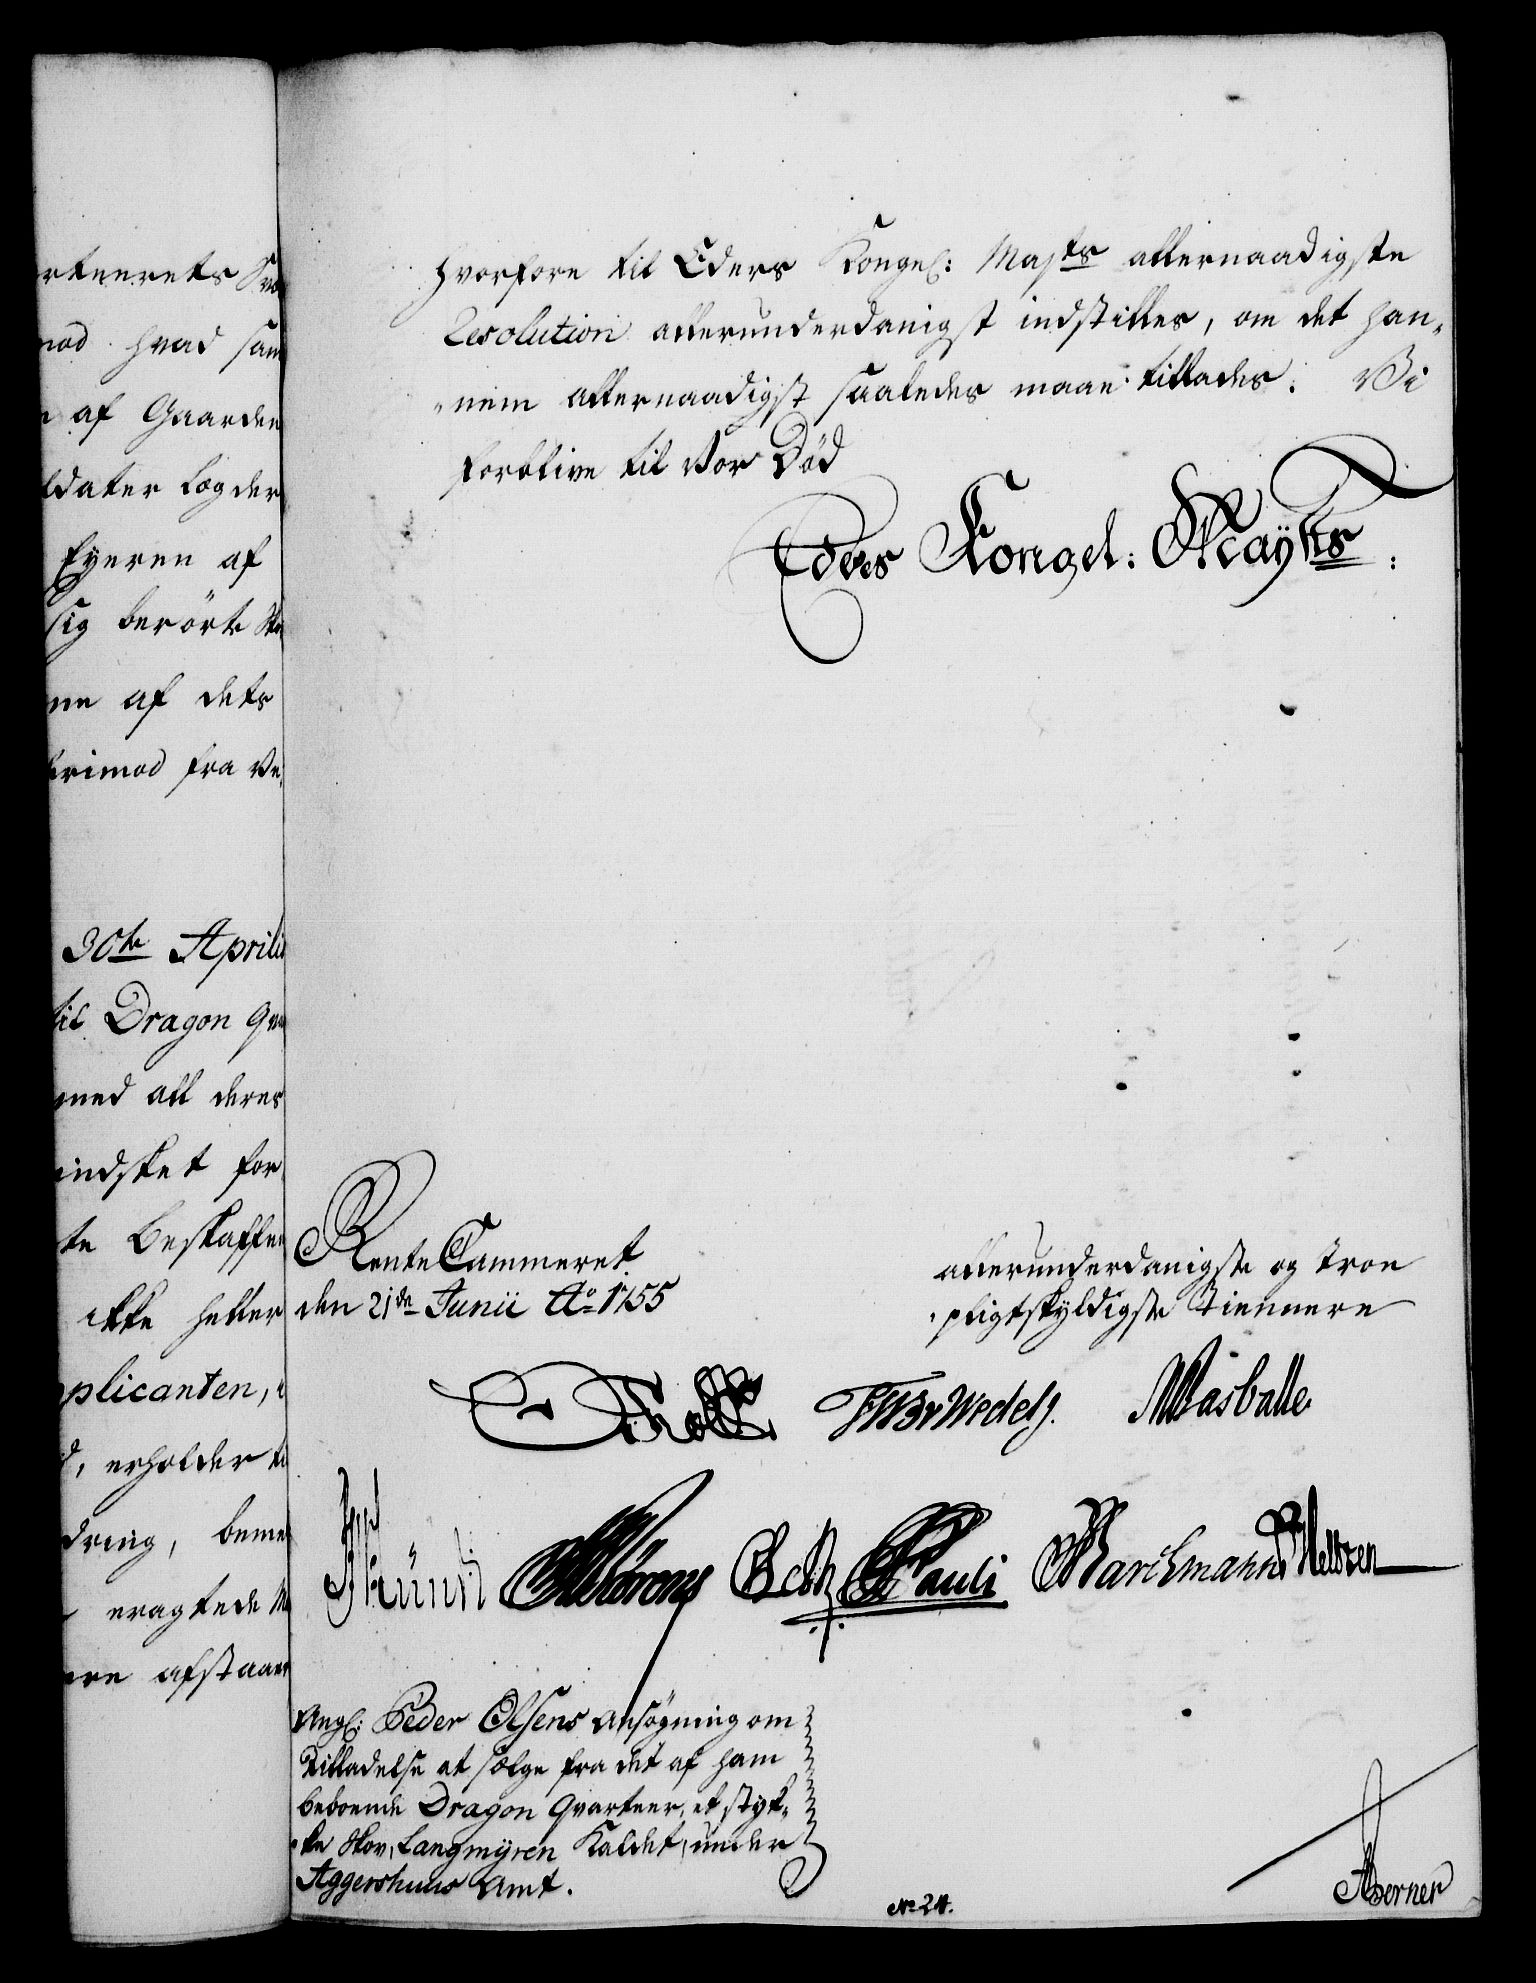 rtnerets
mod hvad sam
af Gaarden
ldater Lægder
Eyeren af
sig berørte
ne af dets
fra
30te Aprilis
til Dragon
med all deres
indsket for
te Beskaffen
ikke heller
plicanten,
erholder
dring, beme
eragtede
ere afstaaer
hvorfore til Eders Kongel: Majts allernaadigste
Resolution allerunderdanigst indstilles, om det han„
„nem allernaadigst saaledes maae tillades. Vi
forblive til vor Død
Eders Kongel: Mayts:
Rente Cammeret
den 21de Junii Ao 1755
allerunderdanigste og troe
pligtskyldigste Tiennere
Wedel J. Masballe
Pauli
Angl: Peder Olsens Ansøgning om
Tilladelse at sælge fra det af ham
beboende Dragon Qvarteer, et styk„
„ke Skov, Langmÿren Kaldet, under
Aggershuus Amt.
No 24.
Berner